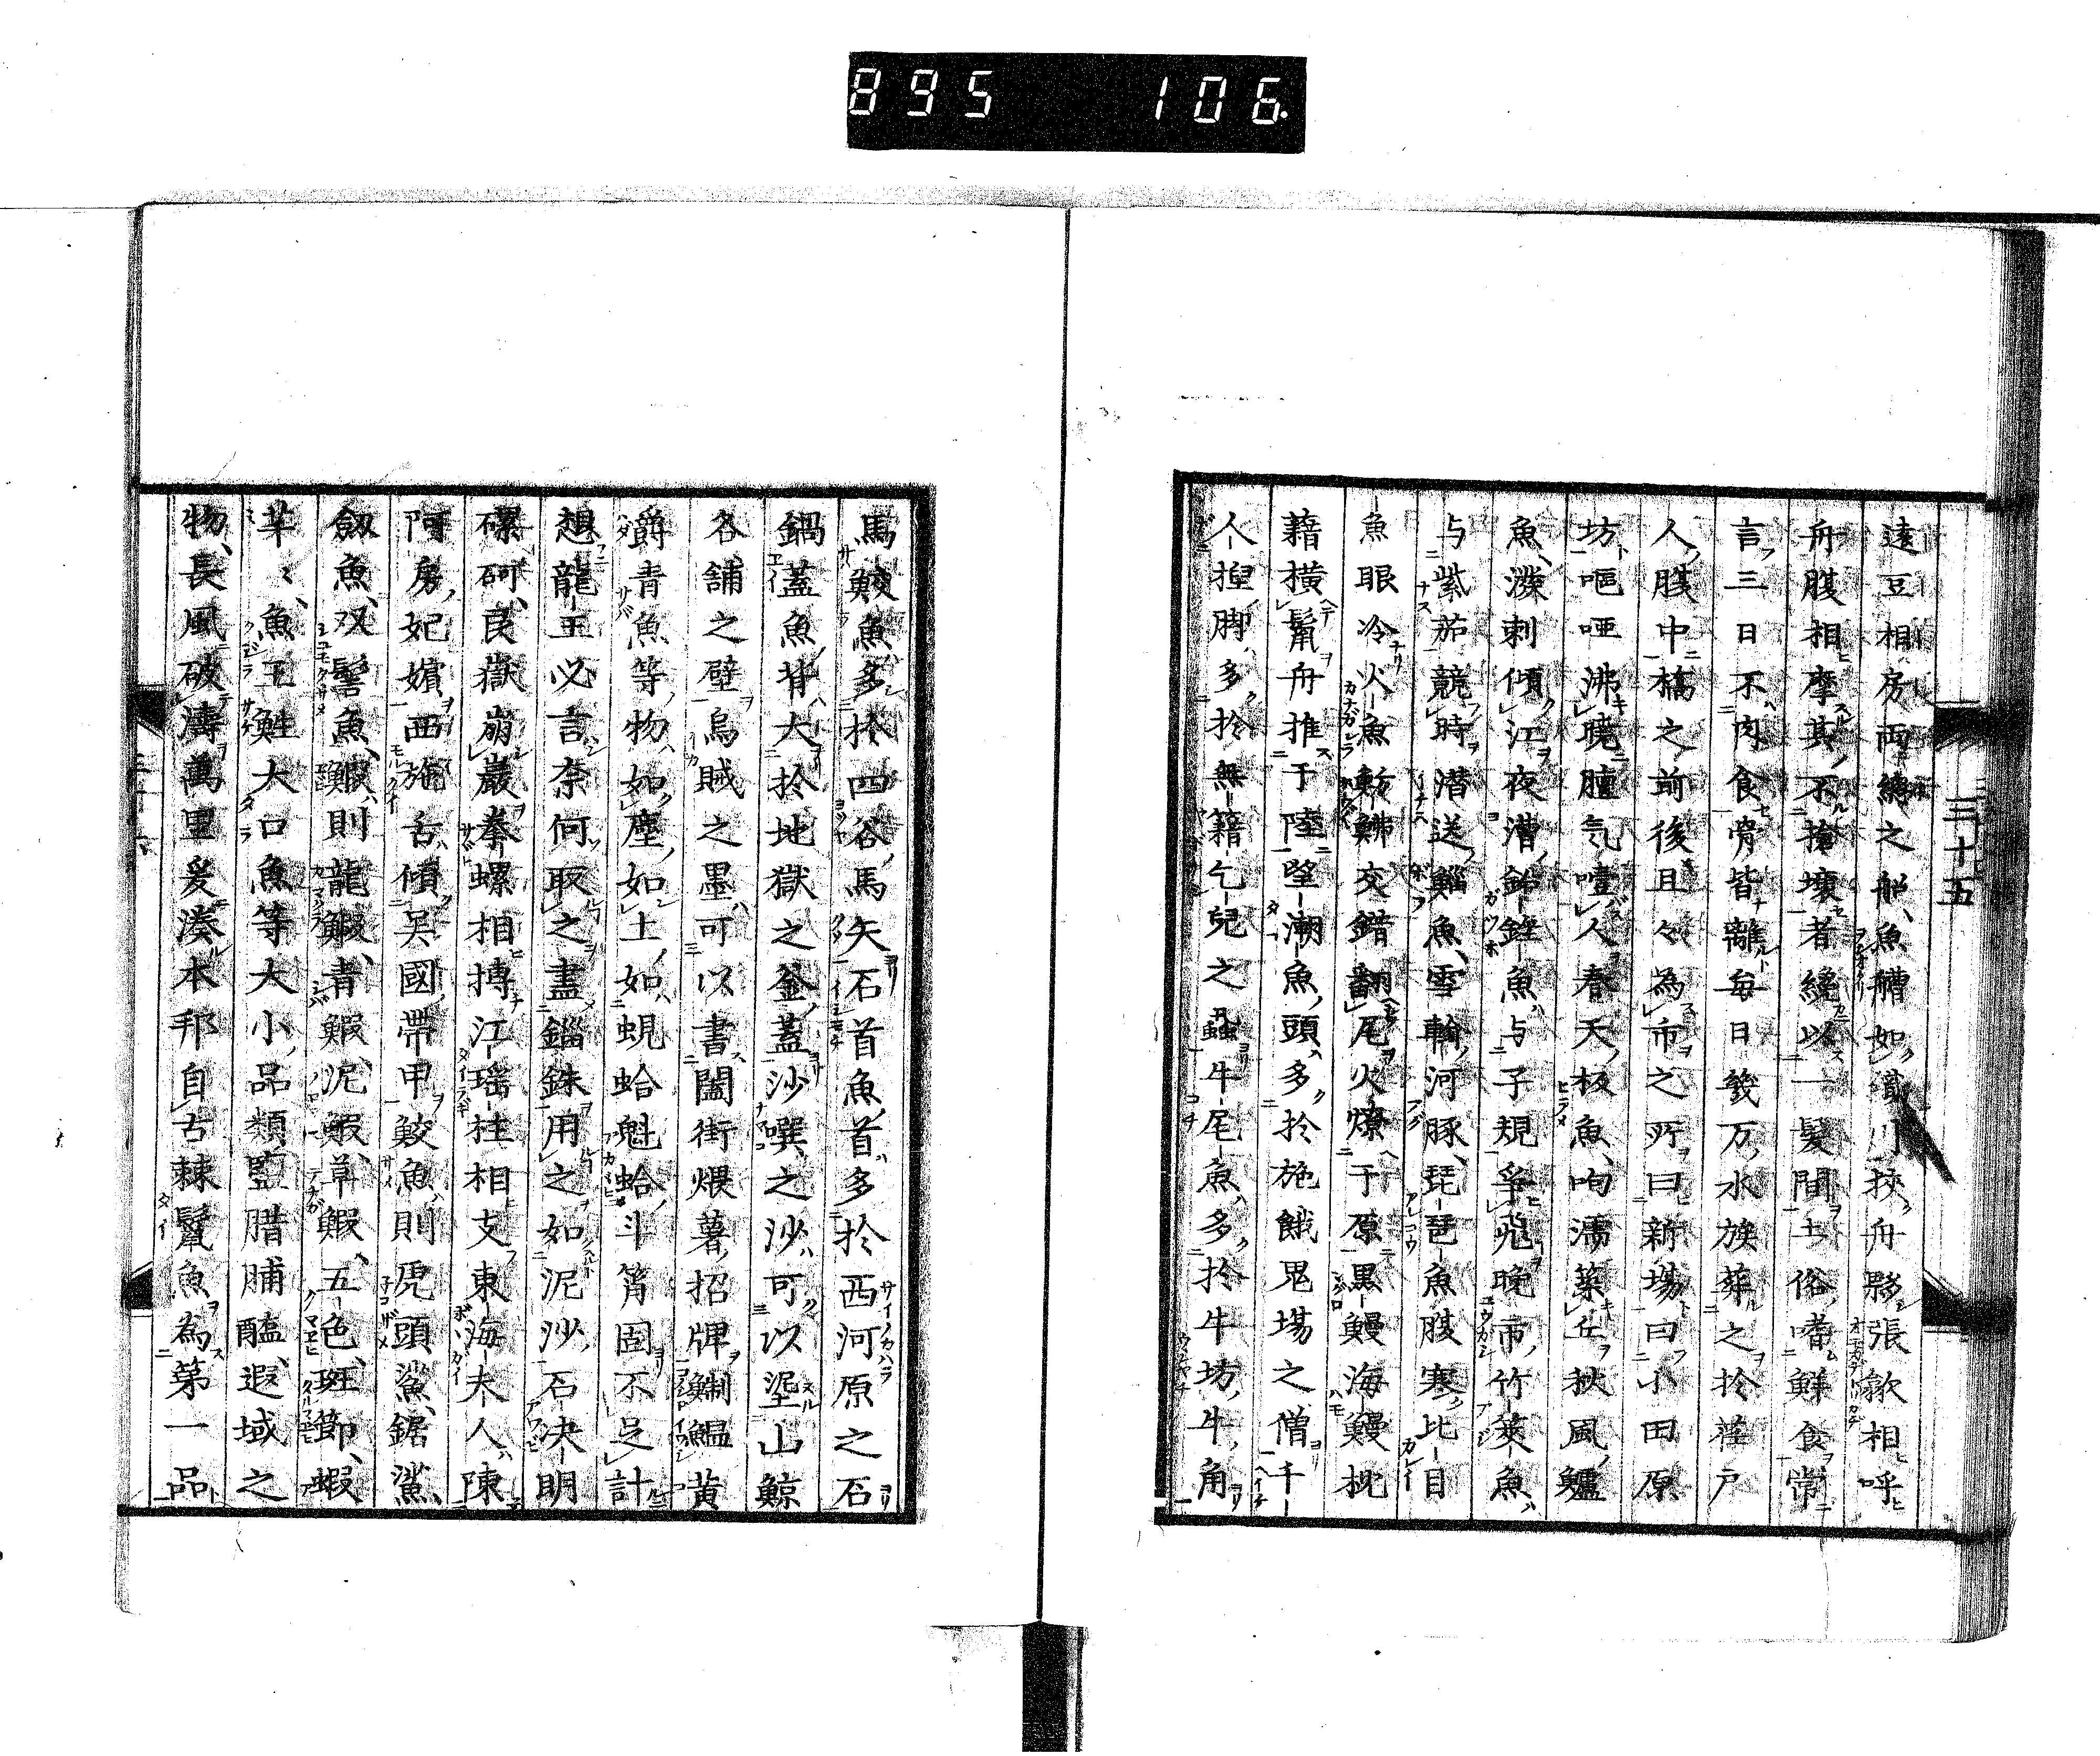 895 106
三十五
遠豆相房両總之船、魚艚如織、川挾舟夥、張歙相呼
舟腹相摩、其不搶壞者、纔以一髮間、土俗嗜鮮食、常
言三日不肉食、骨皆離、毎日幾万水族、葬之於葬戸
人腹中、橋之前後、且々為市之所、曰新場、曰小田原
坊、嘔啞沸曉、膻気噎人、春天板魚、呴濡藻丘、秋風鱸
魚、潑剌傾江、夜漕鉛錘魚、与子規爭飛、晩市竹筴魚、
与紫茄競時、潜送鯔魚、雪輸河豚、琵琶魚腹寒、比目
魚眼冷、火魚魴鮄交錯、翻尾火燎于原、黒鰻海鰻枕
藉、橫鬣舟推于陸、望潮魚頭、多於施餓鬼場之僧、千
人捏脚、多於無籍乞児之蝨、牛尾魚、多於牛坊牛角、
馬鮫魚、多於四谷馬矢、石首魚首、多於西河原之石
鍋蓋魚背、大於地獄之釜蓋、沙噀之沙、可以埿山、鯨
各舗之壁、烏賊之墨、可以書闔街煨薯招牌、鯯鰮黄
爵青魚等物、如塵如土、如蜆蛤魁蛤、斗筲固不足計
想龍王必言、奈何取之盡錙銖、用之如泥沙、石決明
磥砢、良嶽崩巖、拳螺相摶、江瑶柱相支、東海夫人、陳
阿房妃嬪、西施舌、傾呉國、帶甲鮫魚則虎頭鯊、鋸鯊、
劔魚、双髻魚、鰕則龍鰕、青鰕、泥鰕、草鰕、五色班節、蝦
芉々、魚王鮏大口魚等、大小品類、監腊脯醢、遐域之
物、長風破濤、萬里爰湊、本邦自古棘鬣魚為第一品